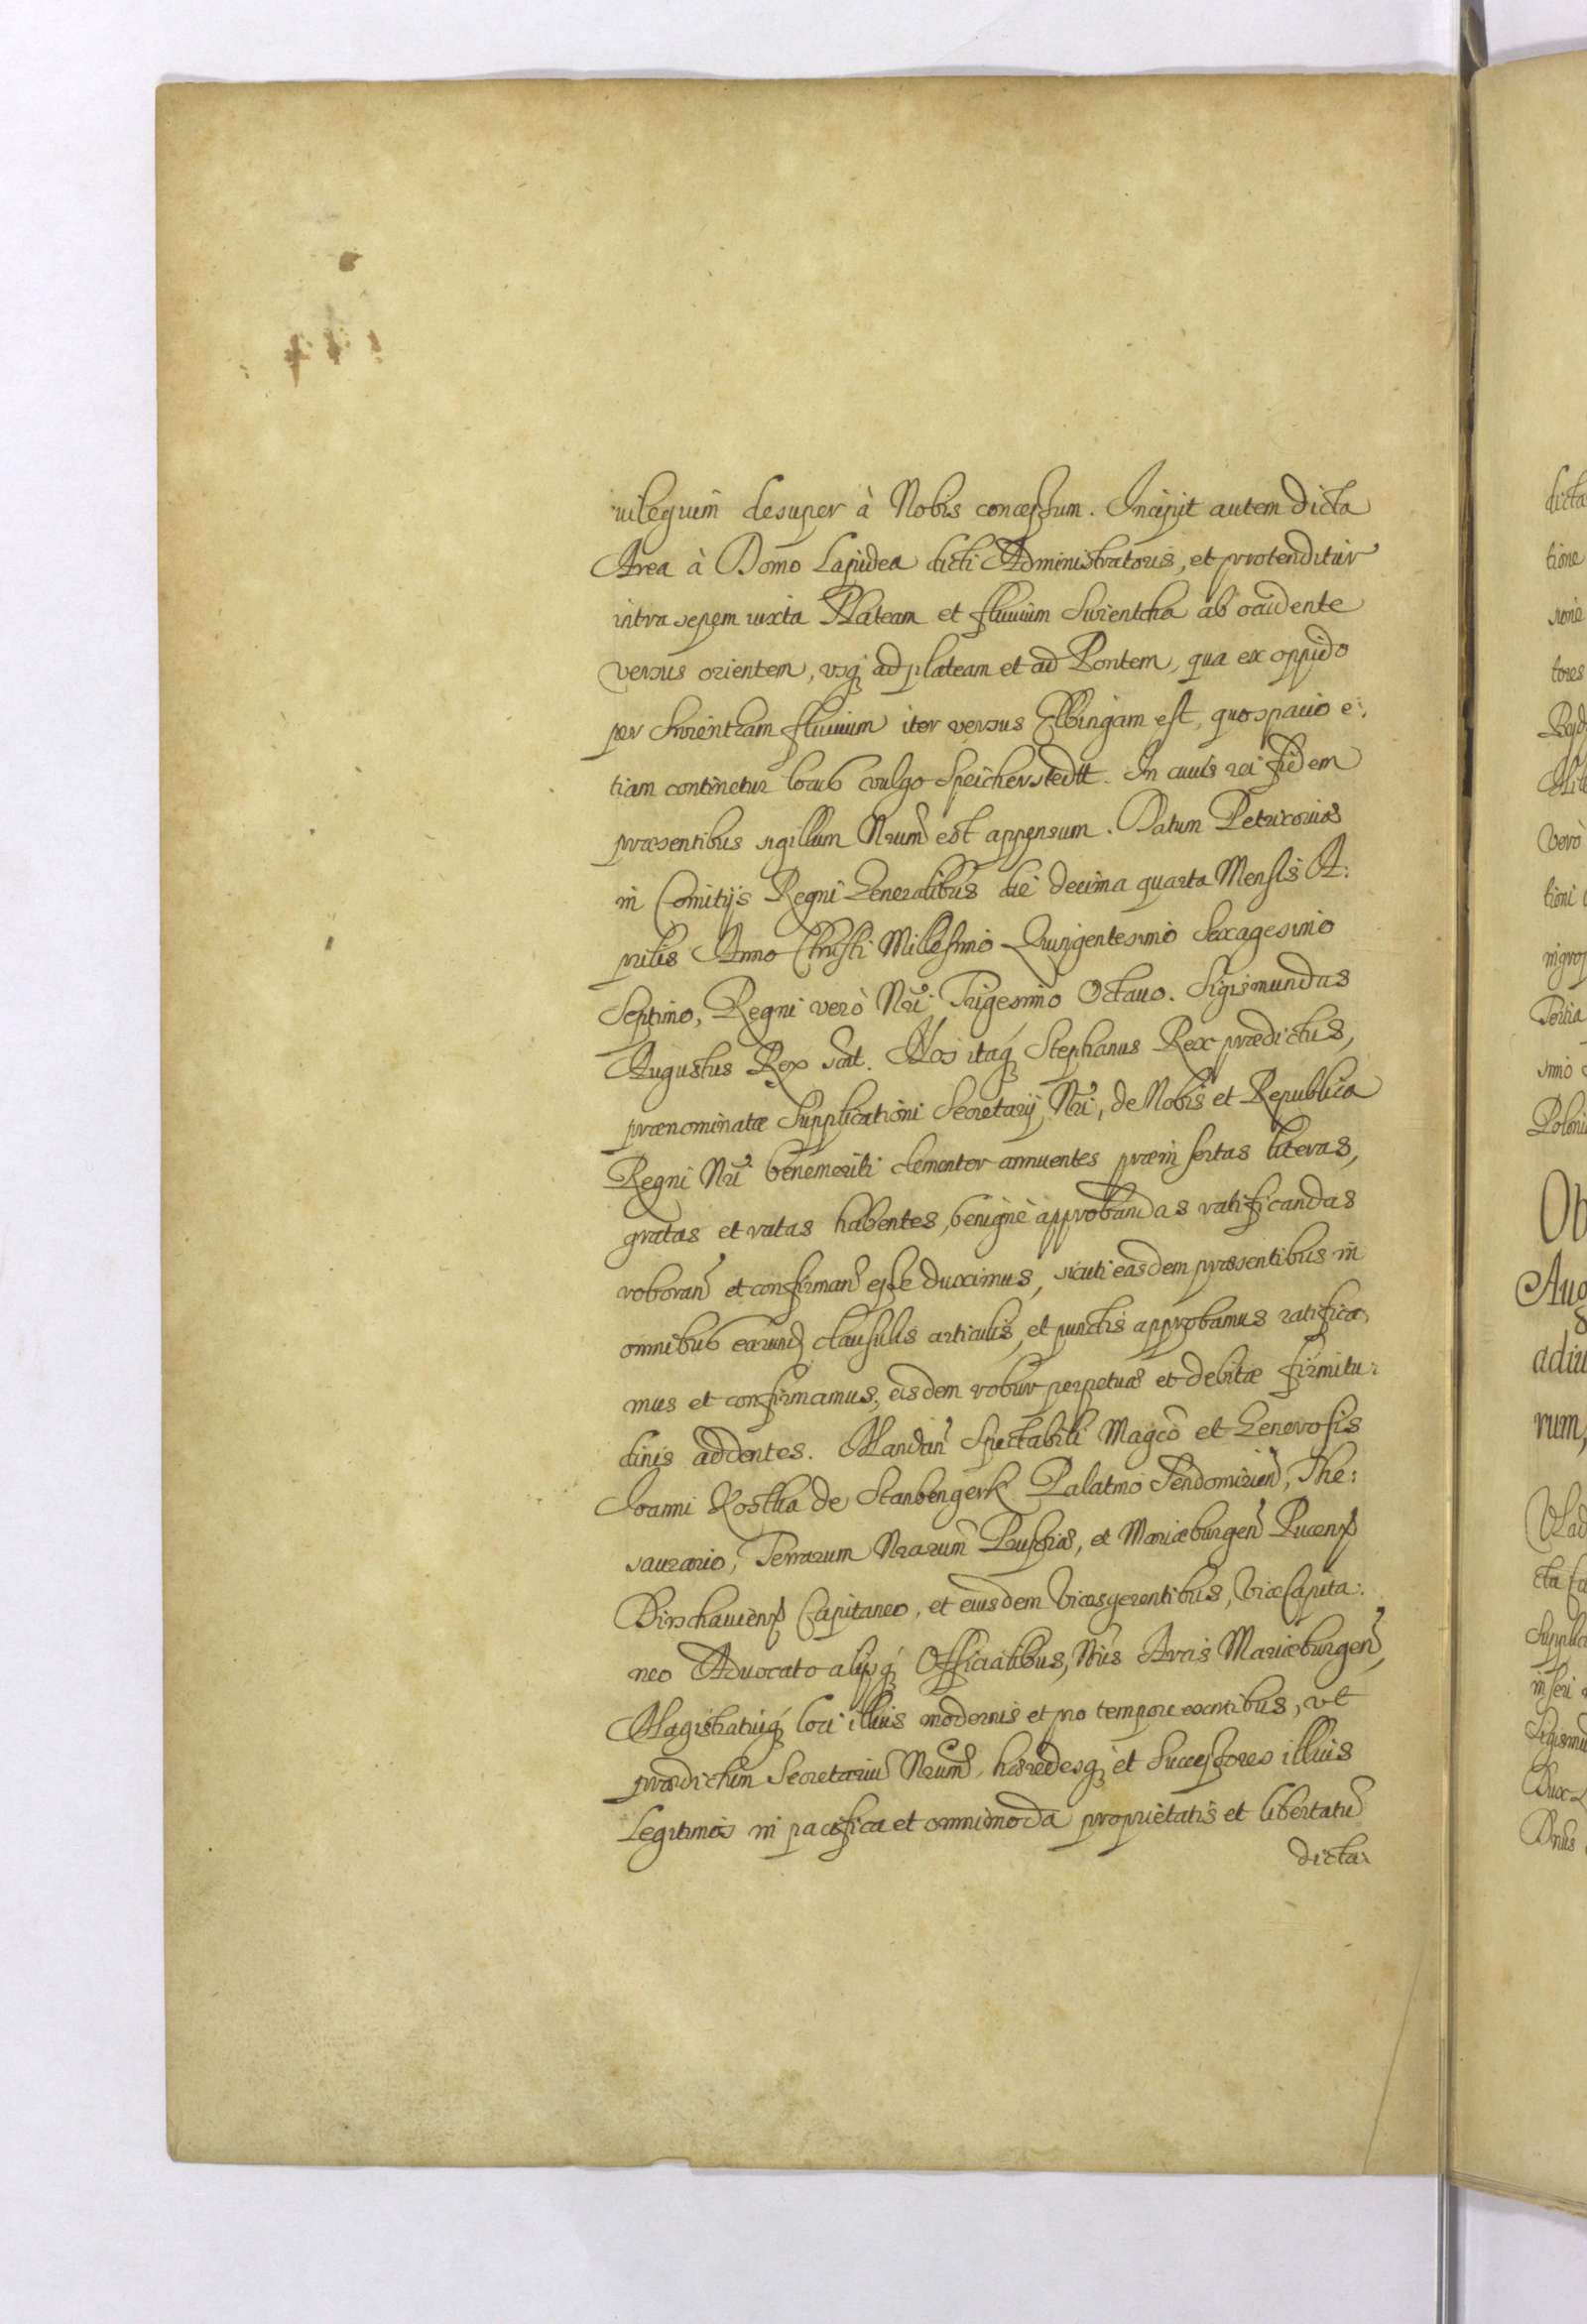 uilegium desuper à Nobis concessum. Incipit autem dicta
Area à Domo Lapidea dicti Administratoris, et protenditur
intra sepem iuxta Plateam et fluuium Swientcha ab occidente
versus orientem, vsq; ad plateam et ad Pontem, qua ex oppido
per Swientzam fluuium iter versus Elbingam est, quo spacio e:
tiam continetur locus vulgo Speicherstedtt. In cuius rei fidem
præsentibus sigillum Nrum est appensum. Datum Petricouiæ
in Comitijs Regni Generalibus die decima quarta Mensis A:
prilis Anno Christi Millesimo Quingentesimo Sexagesimo
Septimo, Regni verò Nri Trigesimo Octauo. Sigismundus
Augustus Rex sstt. Nos itaq; Stephanus Rex prædictus,
prænominatæ Supplicationi Secretarij Nri, de Nobis et Republica
Regni Nri benemeriti clementer annuentes præinsertas literas,
gratas et ratas habentes, benignè approbandas ratificandas
roboran et confirman esse duximus, sicuti easdem præsentibus in
omnibus earund clausulis articulis, et punctis approbamus ratifica:
mus et confirmamus, eisdem robur perpetuæ et debitæ firmitu:
dinis addentes. Mandan Spectabili Magco et Generosis
Joanni Kostka de Stanbengerk Palatino Sendomirien, The:
saurario, Terrarum Nrarum Prussiæ, et Mariæburgen Pucens
Dirschauiens Capitaneo, et eiusdem Vicesgerentibus, ViceCapita:
neo Aduocato alijsq; Officialibus, Nris Arcis Mariæburgen,
Magistratuiq; loci illius modernis et pro tempore exntibus, vt
prædictum Secretarium Nrum, hæredesq; et Successores illius
Legitimos in pacifica et omnimoda proprietatis et libertatu
dicta: